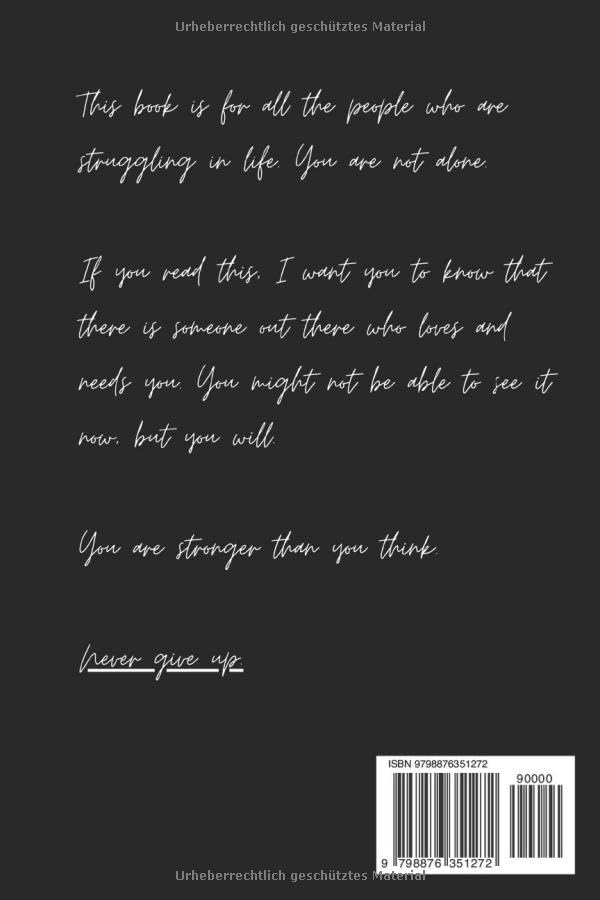 Urheberrechtlich geschütztes Material
This book is for all the people who are
struggling in life. You are not alone.
If you read this, I want you to know that
there is someone out there who loves and
needs you. You might not be able to see it
now, but you will.
You are stronger than you think.
Never give up.
ISBN 9798876351272
90000
9 798876 351272
Urheberrechtlich geschütztes Material